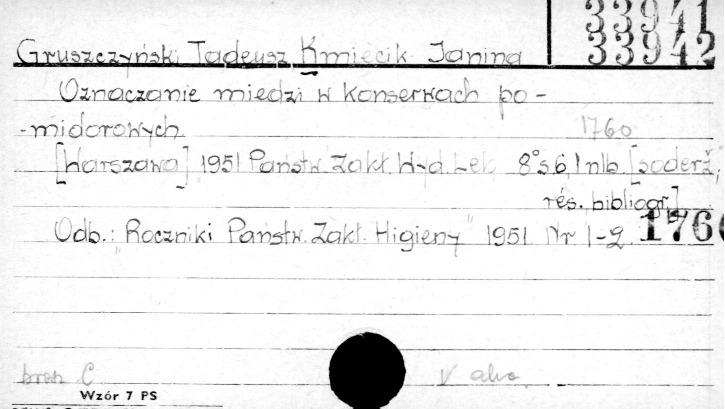 33941
33942
Gruszczyński Tadeusz, Kmiecik Janina
Oznaczanie miedzi w konserwach po-
-midorowych.
1760
[Warszawa] 1951 Państw. Zakł. Wyd. Lek. 8° s. 6, 1 nlb. [soderž.,
rés. bibliogr.]
Odb.: "Roczniki Państw. Zakł. Higieny" 1951 Nr 1-2.
1760
C
Wzór 7 PS